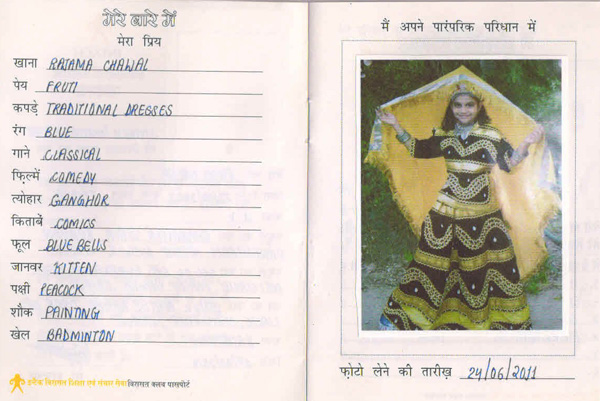 मेरे बारे में
मेरा प्रिय
खाना RAJAMA CHAWAL
पेय FRUTI
कपड़े TRADITIONAL DRESSES
रंग BLUE
गाने CLASSICAL
फ़िल्में COMEDY
त्योहार GANGHOR
किताबें COMICS
फूल BLUE BELLS
जानवर KITTEN
पक्षी PEACOCK
शौक PAINTING
खेल BADMINTON
इन्टैक विरासत शिक्षा एवं संचार सेवा विरासत क्लब पासपोर्ट
मैं अपने पारंपरिक परिधान में
फ़ोटो लेने की तारीख़ 24/06/2011